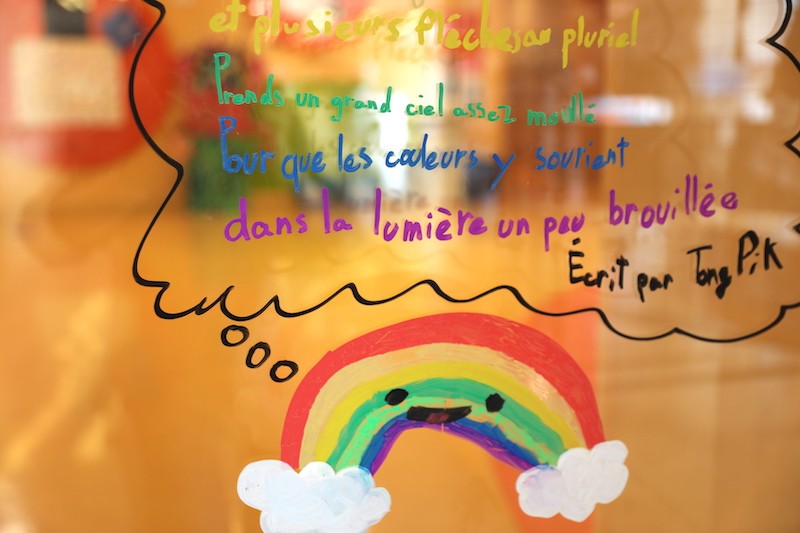 et plusieurs fléches au pluriel
Prends un grand ciel assez mouillé
Pour que les couleurs y sourient
dans la lumière un peu brouillée
Écrit par Tong PiK